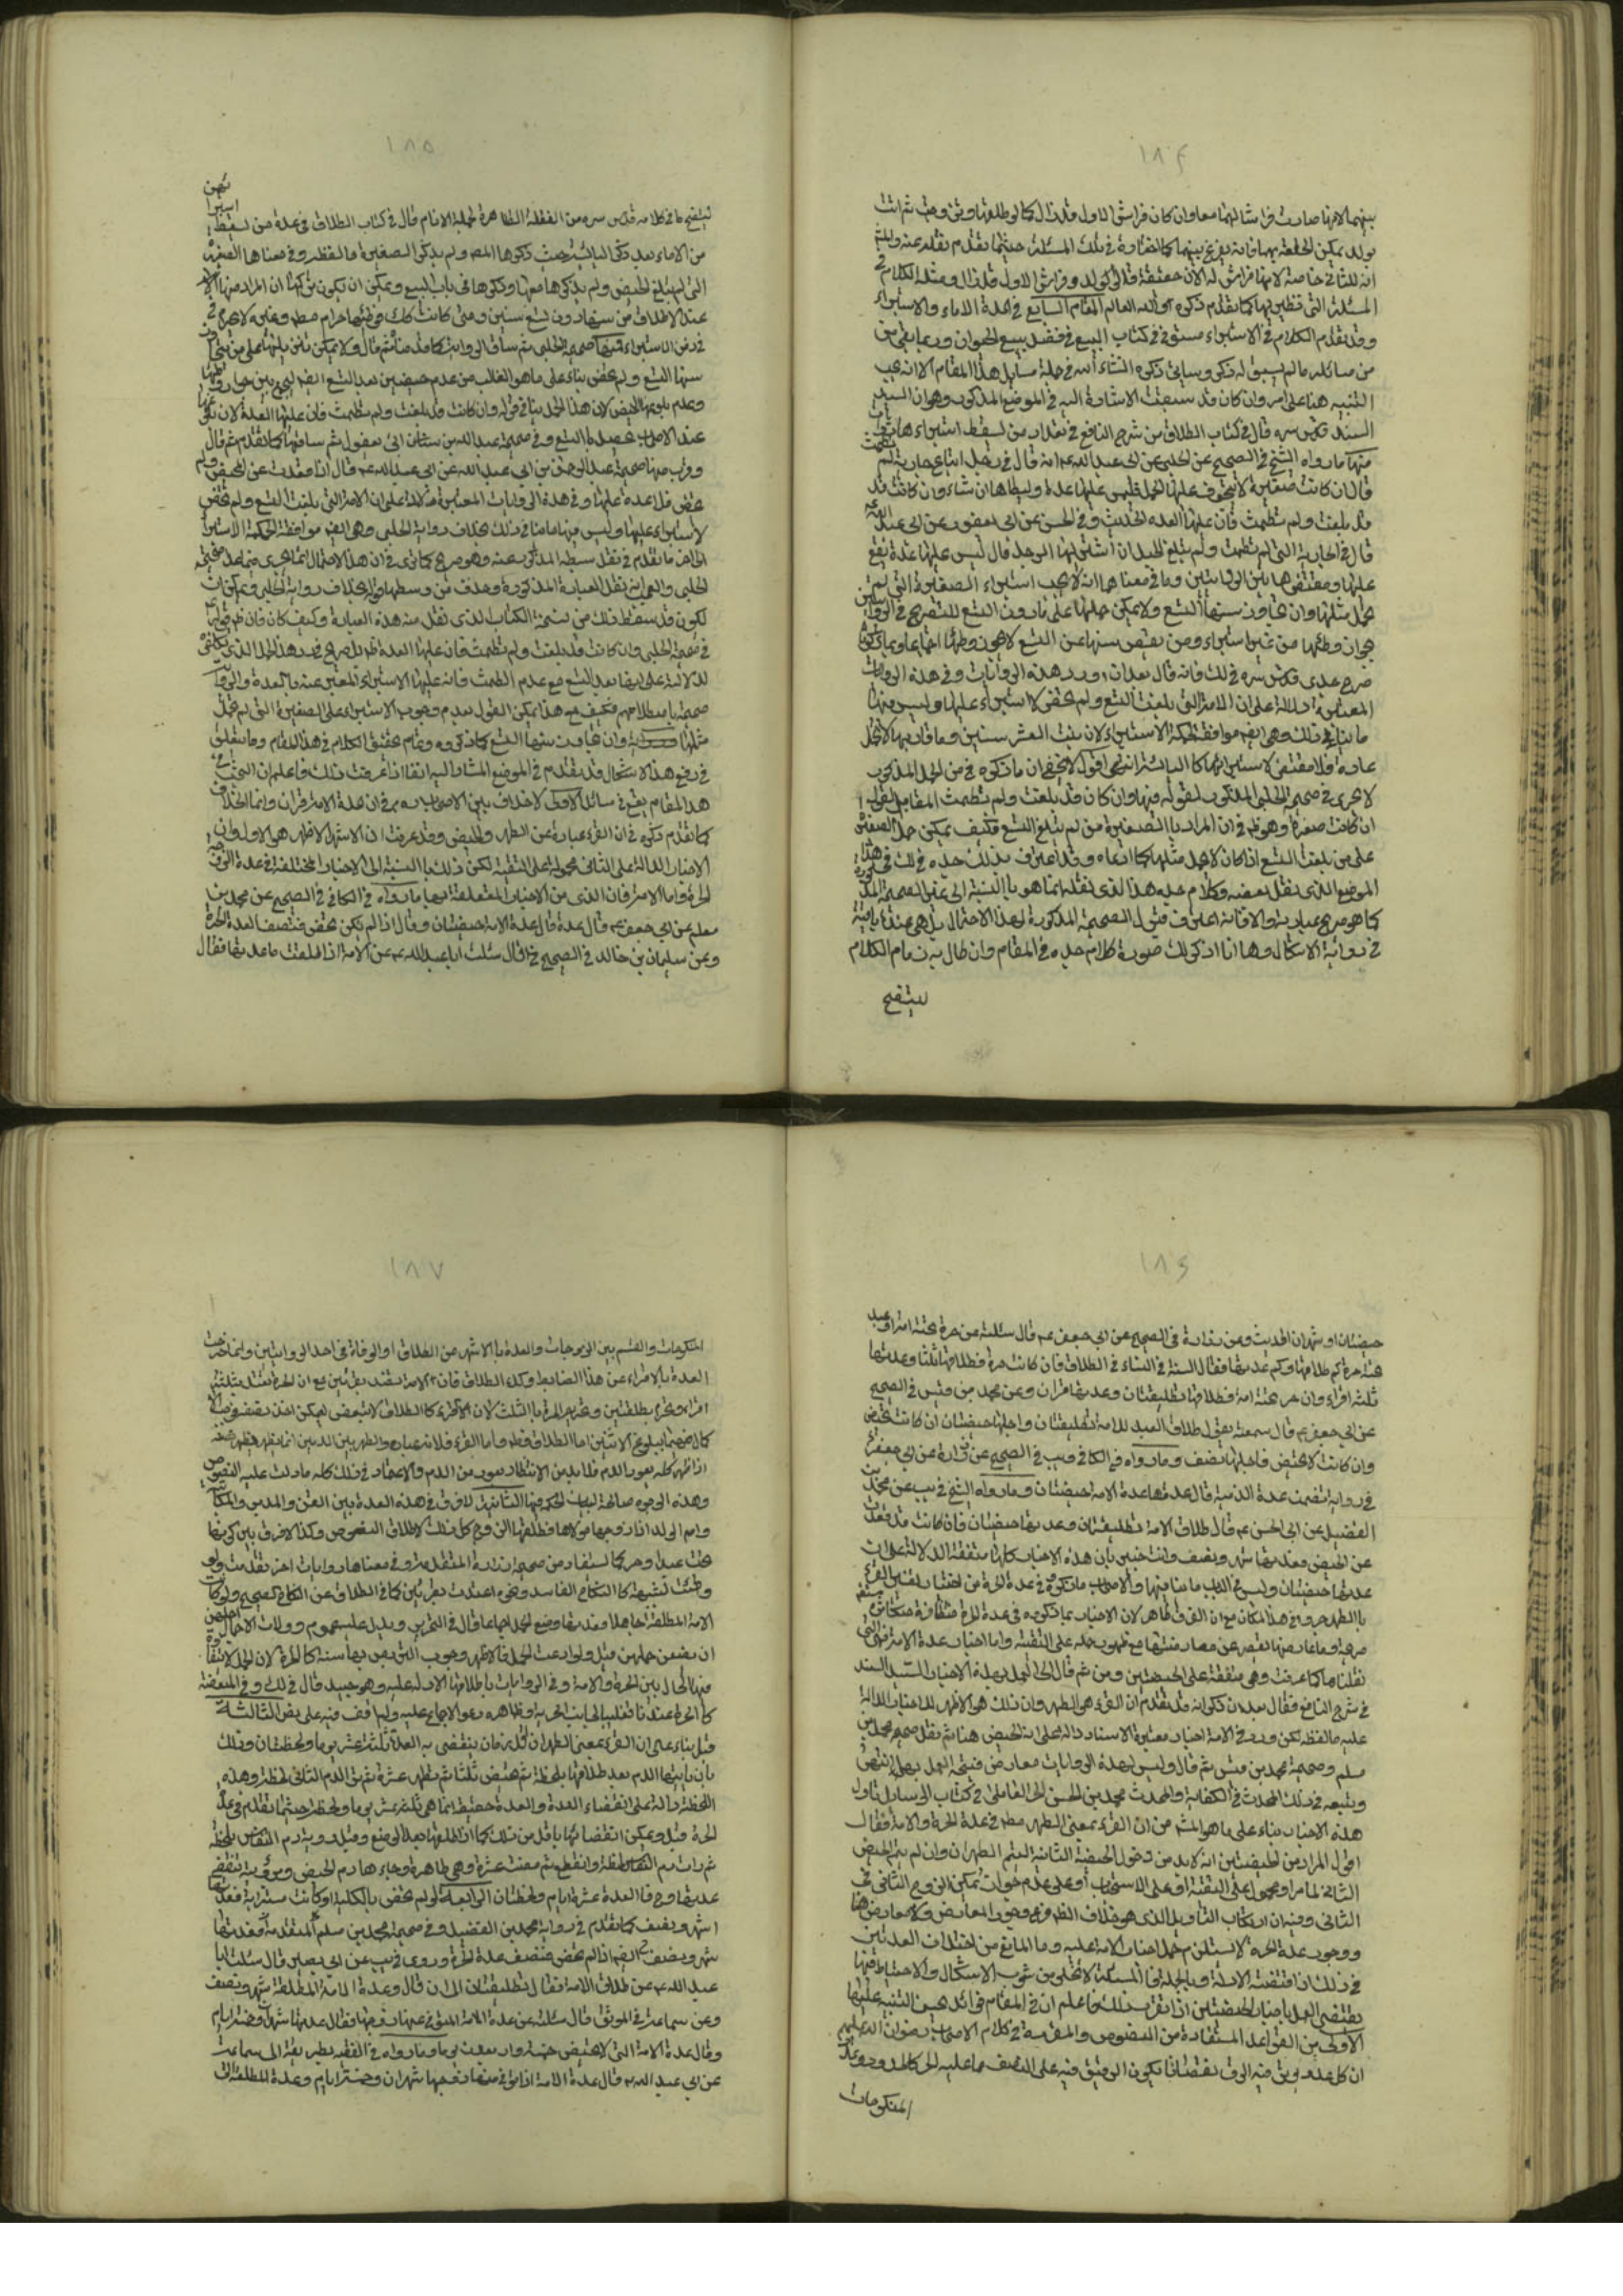 ١٨٤
بينهما لانها صارت فراشا لهما معا وان كان فراش الاول قد زال كما لو طلقها وتزوجت ثم اتت
بولد يمكن لحوقه بهما فانه يقرع بينهما كما اختاره في تلك المسئلة حيثما تقدم نقله عنه
انه للثاني خاصة لانها فراش له الان حقيقة فالولد له وفراش الاول قد زال ومثله الكلام في
المسئلة التي نظير بها كما تقدم ذكره والله العالم المقام السابع في عدة الاماء والاستبراء
وقد تقدم الكلام في الاستبراء مستوفى في كتاب البيع في فصل بيع الحيوان وربما بقي من
من مسائله ما لم يسبق له ذكر وسيأتي ذكره انشاء الله في جملة مسايل هذا المقام الا انه يجب
التنبيه هنا على امر وان كان قد سبقت الاشارة اليه في الموضع المذكور وهو ان السيد
السند قدس سره قال في كتاب الطلاق من شرح النافع في تعداد من يسقط استبراءها
منها ما رواه الشيخ في الصحيح عن الحلبي عن ابي عبد الله ع انه قال في رجل ابتاع جارية لم تطمث
قال ان كانت صغيرة لا يتخوف عليها الحبل فليس عليها عدة وليطأها ان شاء وان كانت قد
قد بلغت ولم تطمث فان عليها العدة الحديث وفي الحسن عن ابن ابي يعفور عن ابي عبد الله ع
قال في الجارية التي لم تطمث ولم تبلغ الحبل اذا اشتراها الرجل قال ليس عليها عدة يقع
عليها ومقتضى هاتين الروايتين وما في معناهما انه لا يجب استبراء الصغيرة التي لم
يحمل مثلها وان تجاوز سنها التسع ولا يمكن حملها على ما دون التسع للتصريح في الروايتين
بجواز وطئها من غير استبراء ومن نقص سنها عن التسع لا يجوز وطئها اجماعا وبما ذكرنا
صرح جدي قدس سره في لك فانه قال بعد ان اورد هذه الروايات وفي هذه الروايات
المعتبرة دلالة على ان الامة التي بلغت التسع ولم تحض لا استبراء عليها وليس فيها
ما ينافي ذلك وهي ايضا موافقة لحكمة الاستبراء لان بنت العشر سنين وما قاربها لا تحمل
عادة فلا مقتضى لاستبرائها كاليائسة انتهى اقول لا يخفى ان ما ذكره في من الحمل المذكور
لا يجري في صحيحة الحلبي المذكورة لقوله فيها وان كان قد بلغت ولم تطمث المقابل لقوله
ان كانت صغيرة وهو ظ في ان المراد بالصغيرة من لم يبلغ التسع فكيف يمكن حمل الصغيرة
على من بلغت التسع اذا كان لا يحمل مثلها كما ادعاه وقد اعترف بذلك جده في لك في هذا
الموضع الذي نقل بعضه وكلام جده هذا الذي نقله انما هو بالنسبة الى غير الصحيحة المذكورة
كما هو صريح عبارته والا فانه اعترف في الصحيحة المذكورة بهذا الاحتمال بل هي عنده باقية
في زوائة الاشكال وها انا اذكر لك صورة كلام جده في المقام وان طال به زمام الكلام
ليتضح
١٨٥
ليتضح ما في كلامه قدس سره من الغفلة الظاهرة لجملة الانام قال في كتاب الطلاق في عدة من يسقط استبرائهن
من الاماء بعد ذكر اليائسة حيث ذكرها المص ولم يذكر الصغيرة ما لفظه وفي معناها الصغيرة
التي لم تبلغ المحيض ولم يذكرها معها وذكرها في باب البيع ويمكن ان يكون تركها ان المراد منها
عند الاطلاق من سنها دون تسع سنين ومتى كانت كك فوطئها حرام مطلقا وغيره لا يجري في
في زمن الاستبراء فيها صحيحة الحلبي ثم ساق الرواية كما قدمنا ثم قال ولا يمكن
سنها التسع ولم تحض بناء على ما هو الغالب من عدم حيضهن بعد التسع ايضا ليجمع بين جواز وطئها
وعدم بلوغها الحيض لان هذا الحمل ينافي قوله وان كانت قد بلغت ولم تطمث فان عليها العدة لان
عند الاصحاب يحصل بالتسع وفي صحيحة عبد الله بن سنان ابن ابي يعفور ثم ساقها كما تقدم ثم قال
وقرب منها صحيحة عبد الرحمن بن ابي عبد الله عن ابي عبد الله ع قال اذا قعدت عن المحيض ولم
تحض فلا عدة عليها وفي هذه الروايات المعتبرة دلالة على ان الامة التي بلغت التسع ولم تحض
لا استبراء عليها وليس فيها ما ينافي ذلك بخلاف رواية الحلبي وهي ايضا موافقة لحكمة الاستبراء
الى اخر ما تقدم في نقل سبطه المذكور عنه وهو صريح كما ترى في ان هذا الاحتمال انما يجري فيما عدا صحيحة
الحلبي والعجب انه نقل العبارة المذكورة وحذف من وسطها قوله بخلاف رواية الحلبي ويمكن ان
يكون قد سقط ذلك من نسخة الكتاب الذي نقل منه هذه العبارة وكيف كان فان ظ قوله
في صحيحة الحلبي وان كانت قد بلغت ولم تطمث فان عليها العدة ظ بل صريح في رد هذا الحمل الذي
لدلالته على ايضا بعد التسع مع عدم الطمث فانه عليها الاستبراء المعبر عنه بالعدة والرواية
صحيحة باصطلاحهم فكيف مع هذا يمكن القول بعدم وجوب الاستبراء على الصغيرة التي لم تحمل
مثلها وان تجاوزت سنها التسع كما ذكروه وتمام تحقيق الكلام في هذا المقام وما يتعلق
في دفع هذا الاشكال قد تقدم في الموضع المشار اليه انفا اذا عرفت ذلك فاعلم ان البحث في
هذا المقام يقع في مسائل الاولى لا خلاف بين الاصحاب رض في ان عدة الامة قرءان وانما الخلاف
كما تقدم ذكره في ان القرء عبارة عن الطهر والحيض وقد عرفت ان الاشهر الاظهر هي الاول وان
الاخبار الدالة على الثاني محمولة على التقية لكن ذلك بالنسبة الى الاخبار المختلفة في عدة
الحرة واما الامة فان الذي من الاخبار المتعلقة بها ما رواه في الكافي في الصحيح عن محمد بن
مسلم عن ابي جعفر ع قال عدة قال عدة الامة حيضتان وقال اذا لم تكن تحيض فنصف عدة الحرة
وعن سليمان بن خالد في الصحيح قال سئلت ابا عبد الله ع عن الامة اذا طلقت ما عدتها فقال
١٨٦
حيضتان او شهران الحديث وعن زرارة في الصحيح عن ابي جعفر ع قال سئلته عن حر تحته امة او عبد
تحته حرة كم طلاقها وكم عدتها فقال السنة في النساء في الطلاق فان كانت حرة فطلاقها ثلثا وعدتها
ثلثة اقراء وان حر تحته امة فطلاقها تطليقتان وعدتها قرءان وعن محمد بن قيس في الصحيح
عن ابي جعفر ع قال سمعته يقول طلاق العبد للامة تطليقتان واجلها حيضتان ان كانت تحيض
وان كانت لا تحيض فاجلها شهر ونصف وما رواه في الكافي ويب في الصحيح عن زرارة عن ابي جعفر ع
في رواية تضمنت عدة الذمية قال عدتها عدة الامة حيضتان وما رواه الشيخ في يب عن محمد بن
الفضيل عن ابي الحسن ع قال طلاق الامة تطليقتان وعدتها حيضتان فان كانت قد قعدت
عن الحيض فعدتها شهر ونصف وانت خبير بان هذه الاخبار كلها متفقة الدلالة على ان
عدتها حيضتان وليس في الباب ما ينافيها والاصحاب ما ذكروه في عدة الحرة من اختيار تفسير القرء
بالطهر جروا في هذا المكان مع ان الفرق ظاهر لان الاخبار بما ذكروه في عدة الحرة متظافرة متكاثرة
صريحة وما عارضها يقصر عن معارضتها مع ظهور حمله على التقية واما اخبار عدة الامة فهي التي
نقلناها كما عرفت وهي متفقة على الحيضتين ومن ثم قال الى العمل بهذه الاخبار السيد السند
في شرح النافع فقال بعد ان ذكر انه قد تقدم ان القرء هو الطهر وان ذلك هو الاظهر للاخبار الدالة
عليه ما لفظه لكن ورد في الامة اخبار معتبرة الاسناد دالة على انه الحيض هنا ثم نقل صحيح محمد بن
مسلم وصحيحة محمد بن قيس ثم قال وليس لهذه الروايات معارض فيتجه العمل بها انتهى
وتبعه في ذلك المحدث في الكفاية والمحدث محمد بن الحسن الحر العاملي في كتاب الوسايل تاول
هذه الاخبار بناء على ما هو المشهور من ان القرء بمعنى الطهر مطلقا في عدة الحرة والامة فقال
اقول المراد من الحيضتين انه لابد من دخول الحيضة الثانية ليتم الطهران وان لم يتم الحيض
الثاني لما مر او محمول على التقية او على الاستحباب او على عدم جواز تمكين الزوج الثاني في
الثاني وفيه ان ارتكاب التأويل الذي هو خلاف الظ فرع وجود المعارض ولا معارض هنا
ووجود عدة الحرة لا يستلزم حمل اخبار الامة عليه وما المانع من اختلاف العدتين
في ذلك اذا اقتضته الادلة وبالجملة فالمسئلة لا تخلو من شوب الاشكال والاحتياط فيها
يقتضي العمل باخبار الحيضتين اذا تقرر ذلك فاعلم ان في المقام فوائد يحسن التنبيه عليها
الاولى من القواعد المستفادة من النصوص والمقررة في كلام الاصحاب رضوان الله عليهم
ان كل عدد يؤثر فيه الرق نقصانا يكون الرقيق فيه على النصف مما عليه الحر كالحدود وعدد
المنكوحات
١٨٧
المنكوحات والقسم بين الزوجات والعدة بالاشهر من الطلاق او الوفاة في احد الروايتين وانما خرجت
العدة بالاقراء عن هذا الضابط وكذا الطلاق فان الامة تعتد بقرئين مع ان الحرة تعتد بثلثة
اقراء وتحرم بطلقتين وتحرم الحرة بالثلث لان القرء كالطلاق لا يتبعض
كمال نصفها ببلوغ الاثنين اما الطلاق فظ واما القرء فلانه عبارة والطهر بين الدمين انما يظهر نصفه
اذا ظهر كله بعود الدم فلابد من الانتظار بعود من الدم والاعتماد في ذلك كله ما دلت عليه النصوص
وهذه الوجوه صالحة لبيان الحكمة فيها الثانية لا فرق في هذه العدة بين القن والمدبر والمكاتب
وام الولد اذا زوجها مولاها فطلقها الزوج كل ذلك لاطلاق النصوص وكذا لا فرق بين كونها
تحت عبد او حر كما استفاد من صحيحة زرارة المتقدمة وفي معناها روايات اخر تقدمت ولو
وطئت بشبهة كالنكاح الفاسد ونحوه اعتدت بقرئين كما في الطلاق عن النكاح الصحيح ولو كانت
الامة المطلقة حاملا فعدتها وضع الحمل اجماعا قال في التحرير ويدل عليه عموم واولات الاحمال اجلهن
ان يضعن حملهن قيل ولو ادعت الحمل فالاظهر وجوب التربص بها سنة كالحرة لان الحمل لا يتفاوت
فيها الحال بين الحرة والامة وفي الروايات باطلاقها الدلالة عليه وهو جيد قال في لك وفي المبعضة
كالحرة عندنا تغليبا لجانب الحرية وظاهره دعوى الاجماع عليه ولم اقف فيه على نص الثالثة
قيل بناء على ان القرء بمعنى الطهر ان اقل زمان ينقضي به العدة ثلثة عشر يوما ولحظتان وذلك
بان يأتيها الدم بعد طلاقها بلحظة ثم تحيض ثلثا ثم تطهر عشرة ثم ترى الدم الثاني لحظة وهذه
اللحظة دالة على انقضاء العدة والعدة حقيقة انما هي ثلثة عشر يوما ولحظة حيثما تقدم في عدة
الحرة قيل ويمكن انقضائها باقل من ذلك كما اذا طلقها بعد الوضع وقبل رؤية دم النفاس بلحظة
ثم رأت دم النفاس لحظة وانقطع ثم مضت عشرة وهي طاهرة وجاءها دم الحيض وبرؤيته تنقضي
عدتها وح فالعدة عشرة ايام ولحظتان الرابعة لو لم تحض بالكلية او كانت مسترابة فعدتها
شهر ونصف كما تقدم في رواية محمد بن الفضيل وفي صحيحة محمد بن مسلم المتقدمة فعدتها
شهر ونصف وايضا اذا لم تحض فنصف عدة الحرة وروى في يب عن ابي بصير قال سئلت ابا
عبد الله ع عن طلاق الامة فقال تطليقتان الى ان قال وعدة الامة المطلقة شهر ونصف
وعن سماعة في الموثق قال سئلته عن عدة الامة المتوفى عنها زوجها فقال عدتها شهران وخمسة ايام
وقال عدة الامة التي لا تحيض خمسة واربعون يوما وما رواه في الفقيه بطريقه الى سماعة
عن ابي عبد الله ع قال عدة الامة اذا توفي عنها زوجها شهران وخمسة ايام وعدة المطلقة